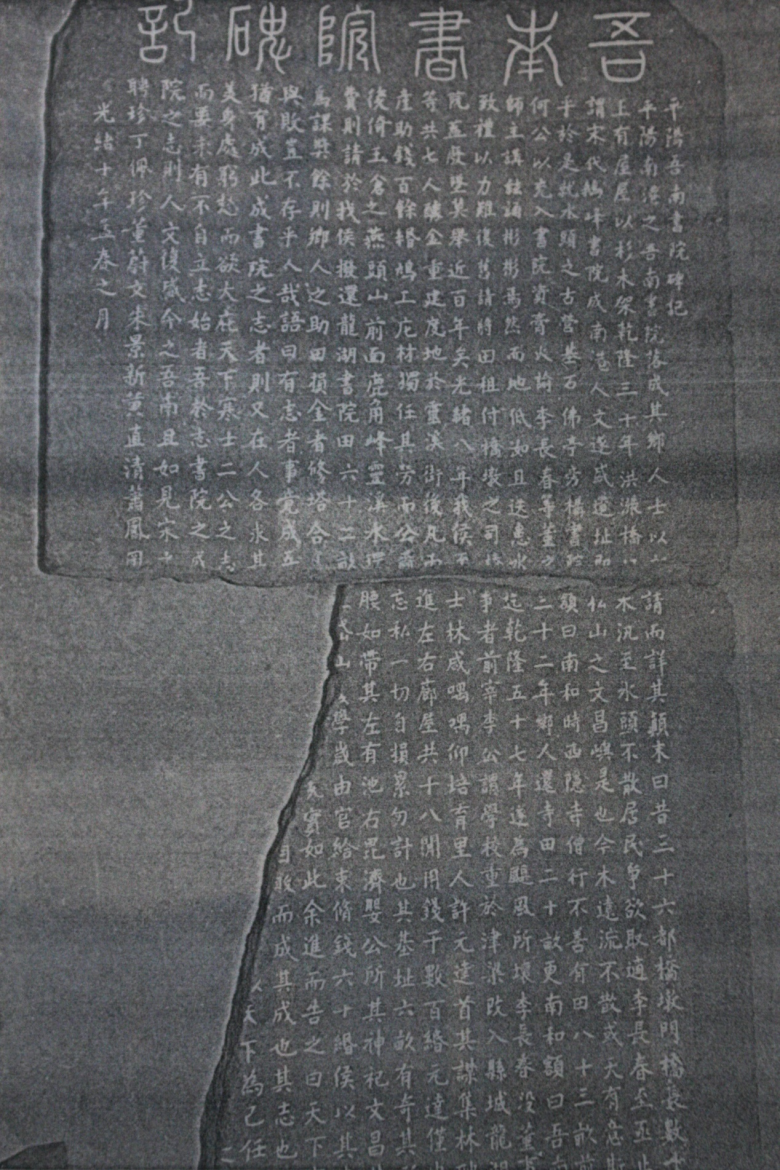 吾南書院碑記
平陽吾南書院碑記
平陽南港之吾南書院落成其鄉人士以請而詳其顛末曰昔三十六都橋墩門橋長數
上有屋屋以杉木架乾隆三十年洪漲橋木沉至水頭不散居民爭欲取適李長春丞丞止
謂宋代鵝峰書院成南港人文遂盛遺址即仏山之文昌嶼是也今木遠流不散或天有意斯
乎於是就水頭之古營基石佛亭旁構書院額曰南和時西隱寺僧行不善有田八十三畝前
何公以充入書院資膏火諭李長春等董之二十二年鄉人還寺田二十畝更南和額曰吾南
師主講絃誦彬彬焉然而地低如且送惠水迄乾隆五十七年遂為颶風所壞李長春沒董
致禮以力難復舊請將田租付橋墩之司事者前宰李公謂學校重於津梁改入縣城龍湖
院蓋廢墜莫舉近百年矣光緒八年我侯士林咸喁喁仰培育里人許元達首其謀集林
等共七人醵金重建度地於靈溪街後凡進左右廊屋共十八間用錢千數百緡元達僅
產助錢百餘緡鳩工庀材獨任其勞而公爾忘私一切自損累勿計也其基址六畝有奇其
後倚玉倉之燕頭山前面鹿角峰靈溪水環腰如帶其左有池右毘濟嬰公所其神祀文昌
費則請於我侯撥還龍湖書院田六十二畝山學歲由官給束脩錢六十緡侯以其
為謀獎餘則鄉人之助田捐金者修塔合實如此余進而告之曰天下
與敗豈不存乎人哉語曰有志者事竟成自敗而成其成也其志也
猶有成此成書院之志者則又在人各求其以天下為己任
美身處窮愁而欲大庇天下寒士二公之志
而要未有不自立志始者吾於志書院之成
院之志則人文復盛今之吾南且如見宋
聘珍丁佩珍董蔚文朱景新黃直清蕭鳳岡
光緒十年孟春之月